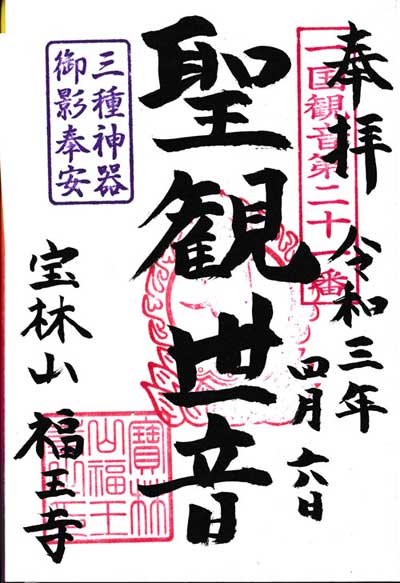 奉拝
二国観音第二十一番
令和三年
四月六日
聖観世音
三種神器
御影奉安
宝林山
福王寺
寶林
山福王